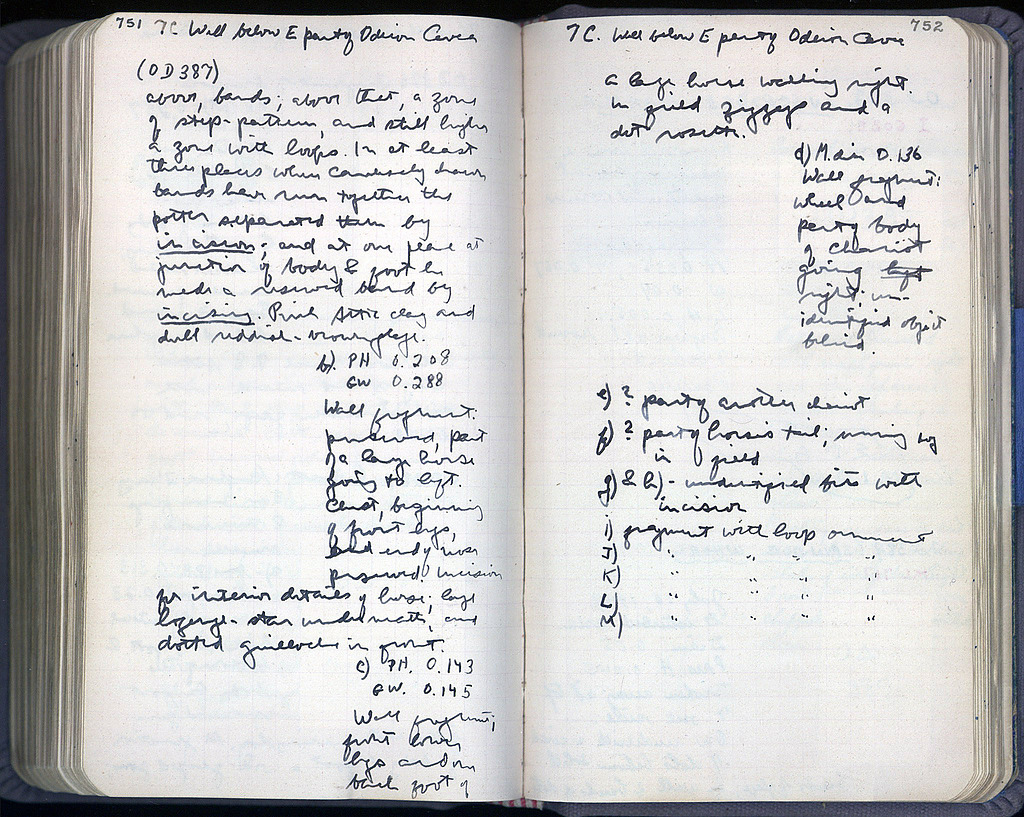 751 7C Well below E part of Odeion Cavea
(OD 387)
above, bands; above that, a zone
of step-pattern, and still higher
a zone with loops. In at least
three places when carelessly drawn
bands have run together the
potter separated them by
incision; and at one place at
junction of body & foot he
made a reserved band by
incising. Pink Attic clay and
dull reddish-brown glaze.
b). PH 0.208
GW 0.288
Wall fragment:
preserved, part
of a large horse
going to left.
Chest, beginning
of front legs,
and body now
preserved; incision
for interior details of horse; large
lozenge-star underneath, and
dotted guilloche in front.
c) PH. 0.143
GW. 0.145
Wall fragment;
front lower
legs and one
back foot of
7C. Well below E part of Odeion Cavea 752
a large horse walking right.
In field zigzags and a
dot rosette.
d) M. dim 0.136
Wall fragment:
wheel and
part of body
of chariot
going left
right; un-
identified object
behind.
e) ? part of another chariot
f) ? part of horse's tail; running
in field
g) & h) - unidentified bits with
incision
i) fragment with loop ornament
J) " " " "
K) " " " "
L) " " " "
M) " " " "